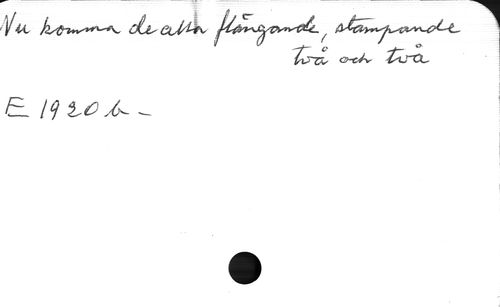 Nu komma de alla flängande, stampande
två och två
E 1920 b -